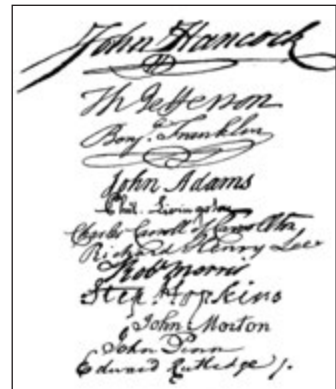 John Hancock
Th Jefferson
Benj. Franklin
John Adams
Phil. Livingston
Charles Carroll of Carrollton
Richard Henry Lee
Rob Morris
Step Hopkins
John Morton
John Penn
Edward Rutledge /.